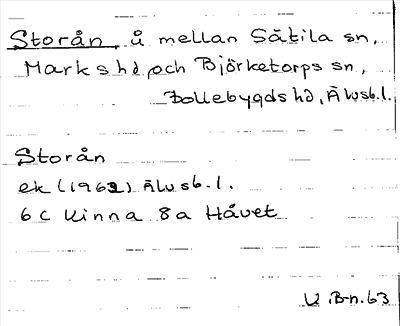 Storån, å mellan Sätila sn,
Marks hd, och Björketorps sn,
Bollebygds hd, Älvsb.l.
Storån
ek (1962) Älvsb.l.
6 C Kinna 8a Håvet
U.B-n.63